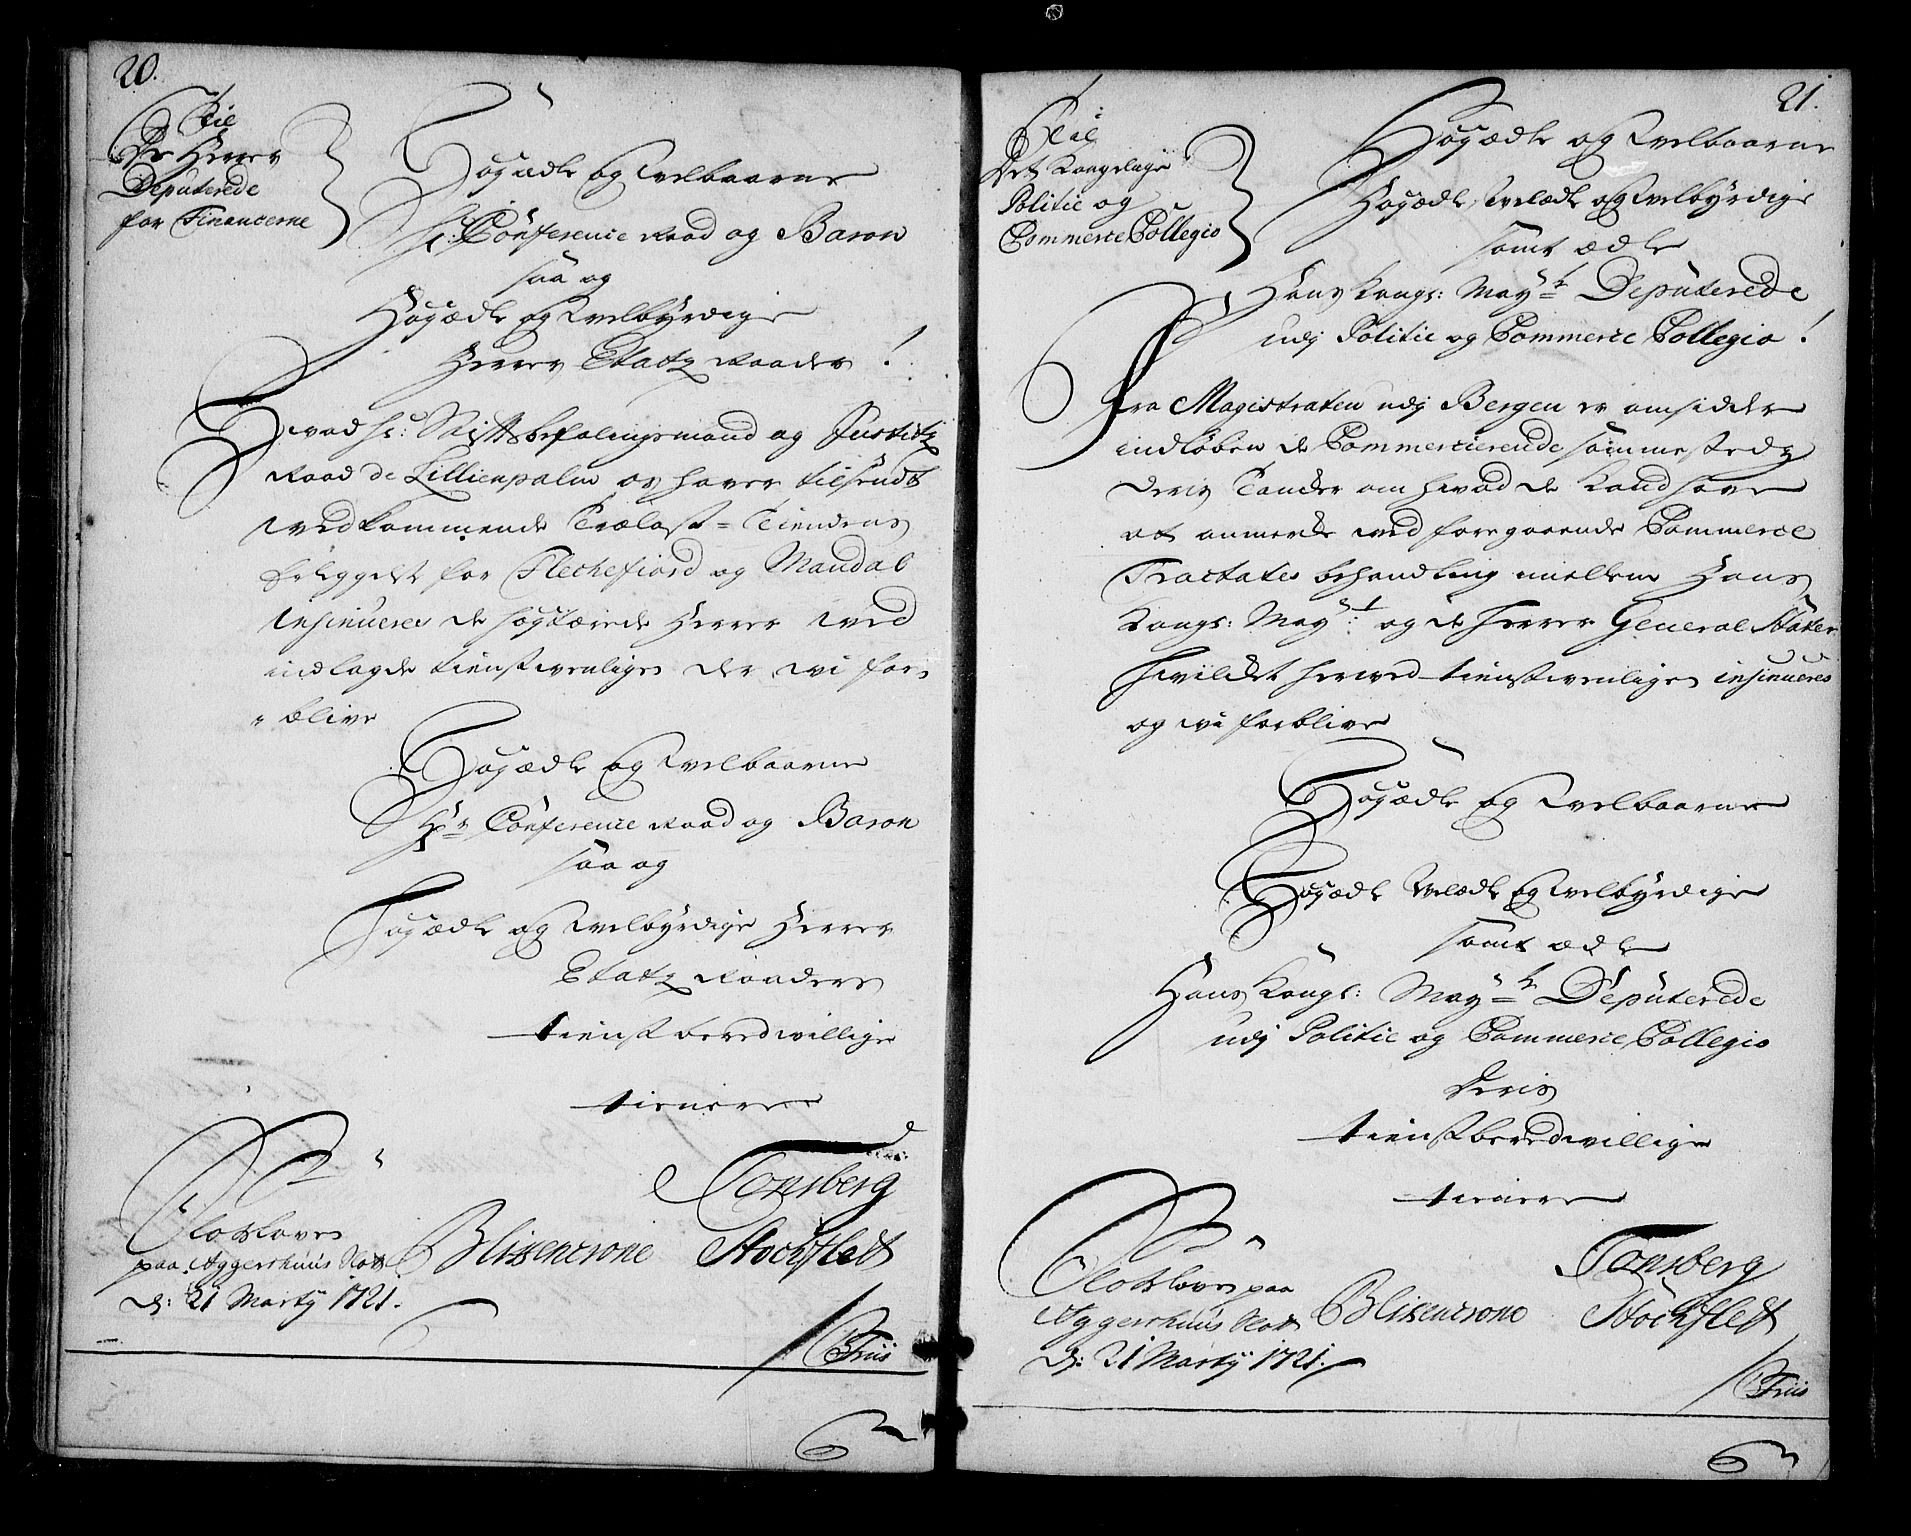 20.
Til
De Herrer
Deputerede
for Financerne
Høyædle og Velbaarne
Hr. Conference Raad og Baron
saa og
Høyædle og Velbyrdige
Herrer Etatz Raader!
Hvad Hr: Stiftsbefalingsmand og Justitz
Raad de Lillienpalm os haver tilsendt
vedkommende Trælast-Tiendens
for Flechefiord og Mandal
insinueres de høystærede Herrer ved
indlagde tienstvenligen der vi for-
" blive
Høyædle og Velbaarne
Hr Conference Raad og Baron
saa og
Høyædle og Velbyrdige Herrer
Etatz Raaders
tienstberedvillige
tienere
Slotsloven
paa Aggershuus Slott
d: 21 Marty 1721.
Tonsberg
Blixencrone Stochfledt
Friis
21.
Til
Det Kongelige
Politie og
Commerce Collegio
Høyædle og Velbaarne
Høyædle, Velædle og Velbyrdige
samt ædle
Hans Kongs: Mayts Deputerede
udj Politie og Commerce Collegio!
Fra Magistraten udj Bergen er omsider
indløben de Commercierende sammestedz
deris Tancker om hvad de kand have
at anmerke ved foregaaende Commerce
Tractates behandling mellem Hans
Kongs: Mayt: og de Herrer General Stater
hvilket herved tienstvenligen insinueres
og vi forblive
Høyædle og Velbaarne
Høyædle Velædle og Velbyrdige
samt ædle
Hans Kongs: Mayts Deputerede
udj Politie og Commerce Collegio
deris
tienstberedvillige
tienere
Slotsloven paa
Aggershuus Slott
d: 21 Marty 1721.
Tonsberg
Blixencrone Stochfledt
Friis